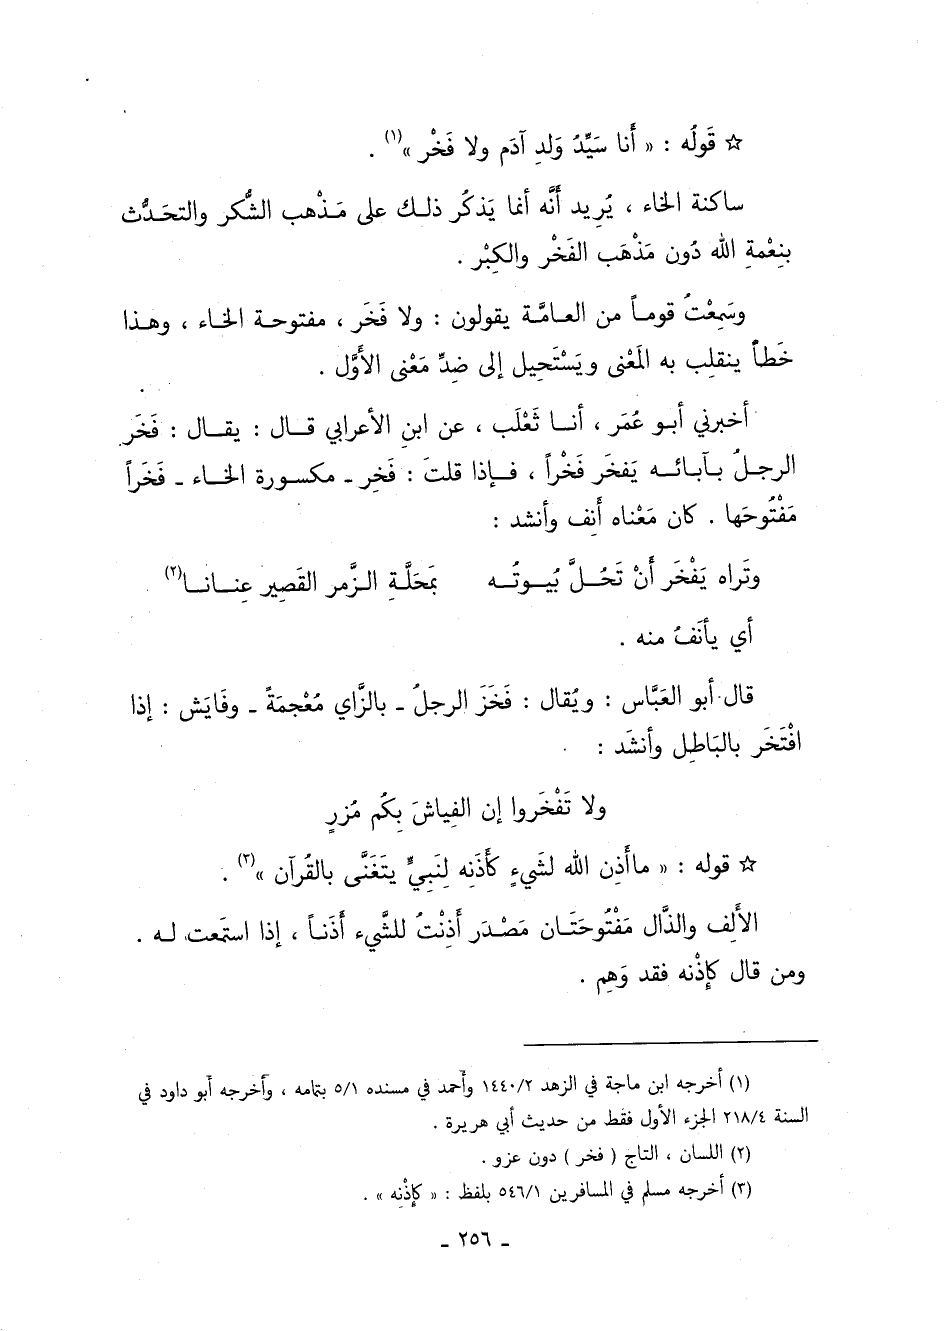 ☆ قَولُه : « أَنا سَيِّدُ وَلدِ آدَم ولا فَخْر »(١) .
ساكنة الخاء ، يُرِيد أنَّه أنما يَذكُر ذلك على مَذْهب الشُّكر والتحَدُّث
بنِعْمةِ الله دُون مَذْهَب الفَخْر والكِبْر .
وسَمِعْتُ قوماً من العامَّة يقولون : ولا فَخَر ، مفتوحة الخاء ، وهذا
خَطأٌ ينقلِب به المَعْنى ويَسْتَحِيل إلى ضِدِّ مَعْنى الأَوَّل .
أخبرني أبو عُمَر ، أنا ثَعْلَب ، عن ابنِ الأعرابي قال : يقال : فَخَر
الرجلُ بآبائه يَفخَر فَخْراً ، فإذا قلتَ : فَخِر ـ مكسورة الخاء ـ فَخَراً
مَفْتُوحَها . كان مَعْناه أَنِف وأنشد :
وتَراه يَفْخَر أنْ تَحُلَّ بُيوتُه بمَحَلَّةِ الزَّمر القَصِير عِنانا(٢)
أي يأنَفُ منه .
قال أبو العَبَّاس : ويُقال : فَخَزَ الرجلُ ـ بالزَّاي مُعْجمَةً ـ وفَايَش : إذا
افْتَخَر بالبَاطِل وأنشَد :
ولا تَفْخَروا إن الفِياشَ بِكُم مُزرٍ
☆ قوله : « ماأَذِن الله لشَيءٍ كَأَذَنِه لِنَبِيٍّ يتَغَنَّى بالقُرآن »(٣) .
الأَلِف والذَّال مَفْتُوحَتَان مَصْدَر أَذِنْتُ للشَّيء أَذَناً ، إذا استَمعت له .
ومن قال كإِذْنه فقد وَهِم .
(١) أخرجه ابن ماجة في الزهد ١٤٤٠/٢ وأحمد في مسنده ٥/١ بتمامه ، وأخرجه أبو داود في
السنة ٢١٨/٤ الجزء الأول فقط من حديث أبي هريرة .
(٢) اللسان ، التاج ( فخر ) دون عزو .
(٣) أخرجه مسلم في المسافرين ٥٤٦/١ بلفظ : « كإِذْنِه » .
ـ ٢٥٦ ـ